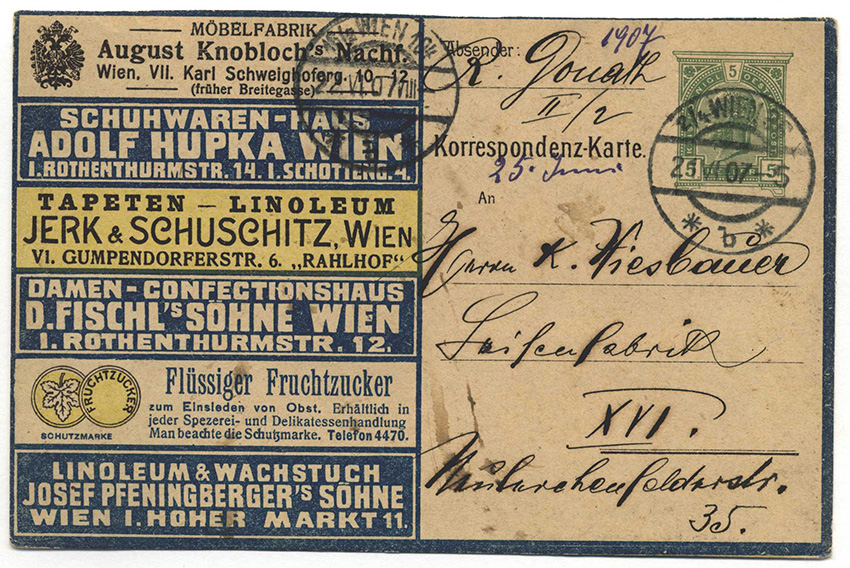 MÖBELFABRIK
August Knobloch's Nachf.
Wien, VII. Karl Schweighoferg. 10-12
(früher Breitegasse)
SCHUHWAREN-HAUS
ADOLF HUPKA WIEN
I. ROTHENTHURMSTR. 14. I. SCHOTTENG. 4.
TAPETEN – LINOLEUM
JERK & SCHUSCHITZ, WIEN
VI. GUMPENDORFERSTR. 6. „RAHLHOF“
DAMEN-CONFECTIONSHAUS
D. FISCHL'S SÖHNE WIEN
I. ROTHENTHURMSTR. 12.
FRUCHTZUCKER
SCHUTZMARKE
Flüssiger Fruchtzucker
zum Einsieden von Obst. Erhältlich in
jeder Spezerei- und Delikatessenhandlung
Man beachte die Schutzmarke. Telefon 4470.
LINOLEUM & WACHSTUCH
JOSEF PFENINGBERGER'S SÖHNE
WIEN I. HOHER MARKT 11.
WIEN
22.VI.07
1907
Absender:
R. Donath
II/2
Korrespondenz-Karte.
25. Juni
An
Herrn K. Wiesbauer
Seifenfabrik
XVI.
Neulerchenfelderstr.
35.
5
5
WIEN
25 VI 07
* b *